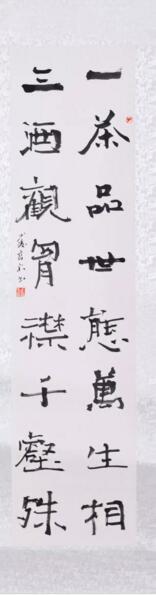 一茶品世態萬生相
三酒觀胷襟千壑殊